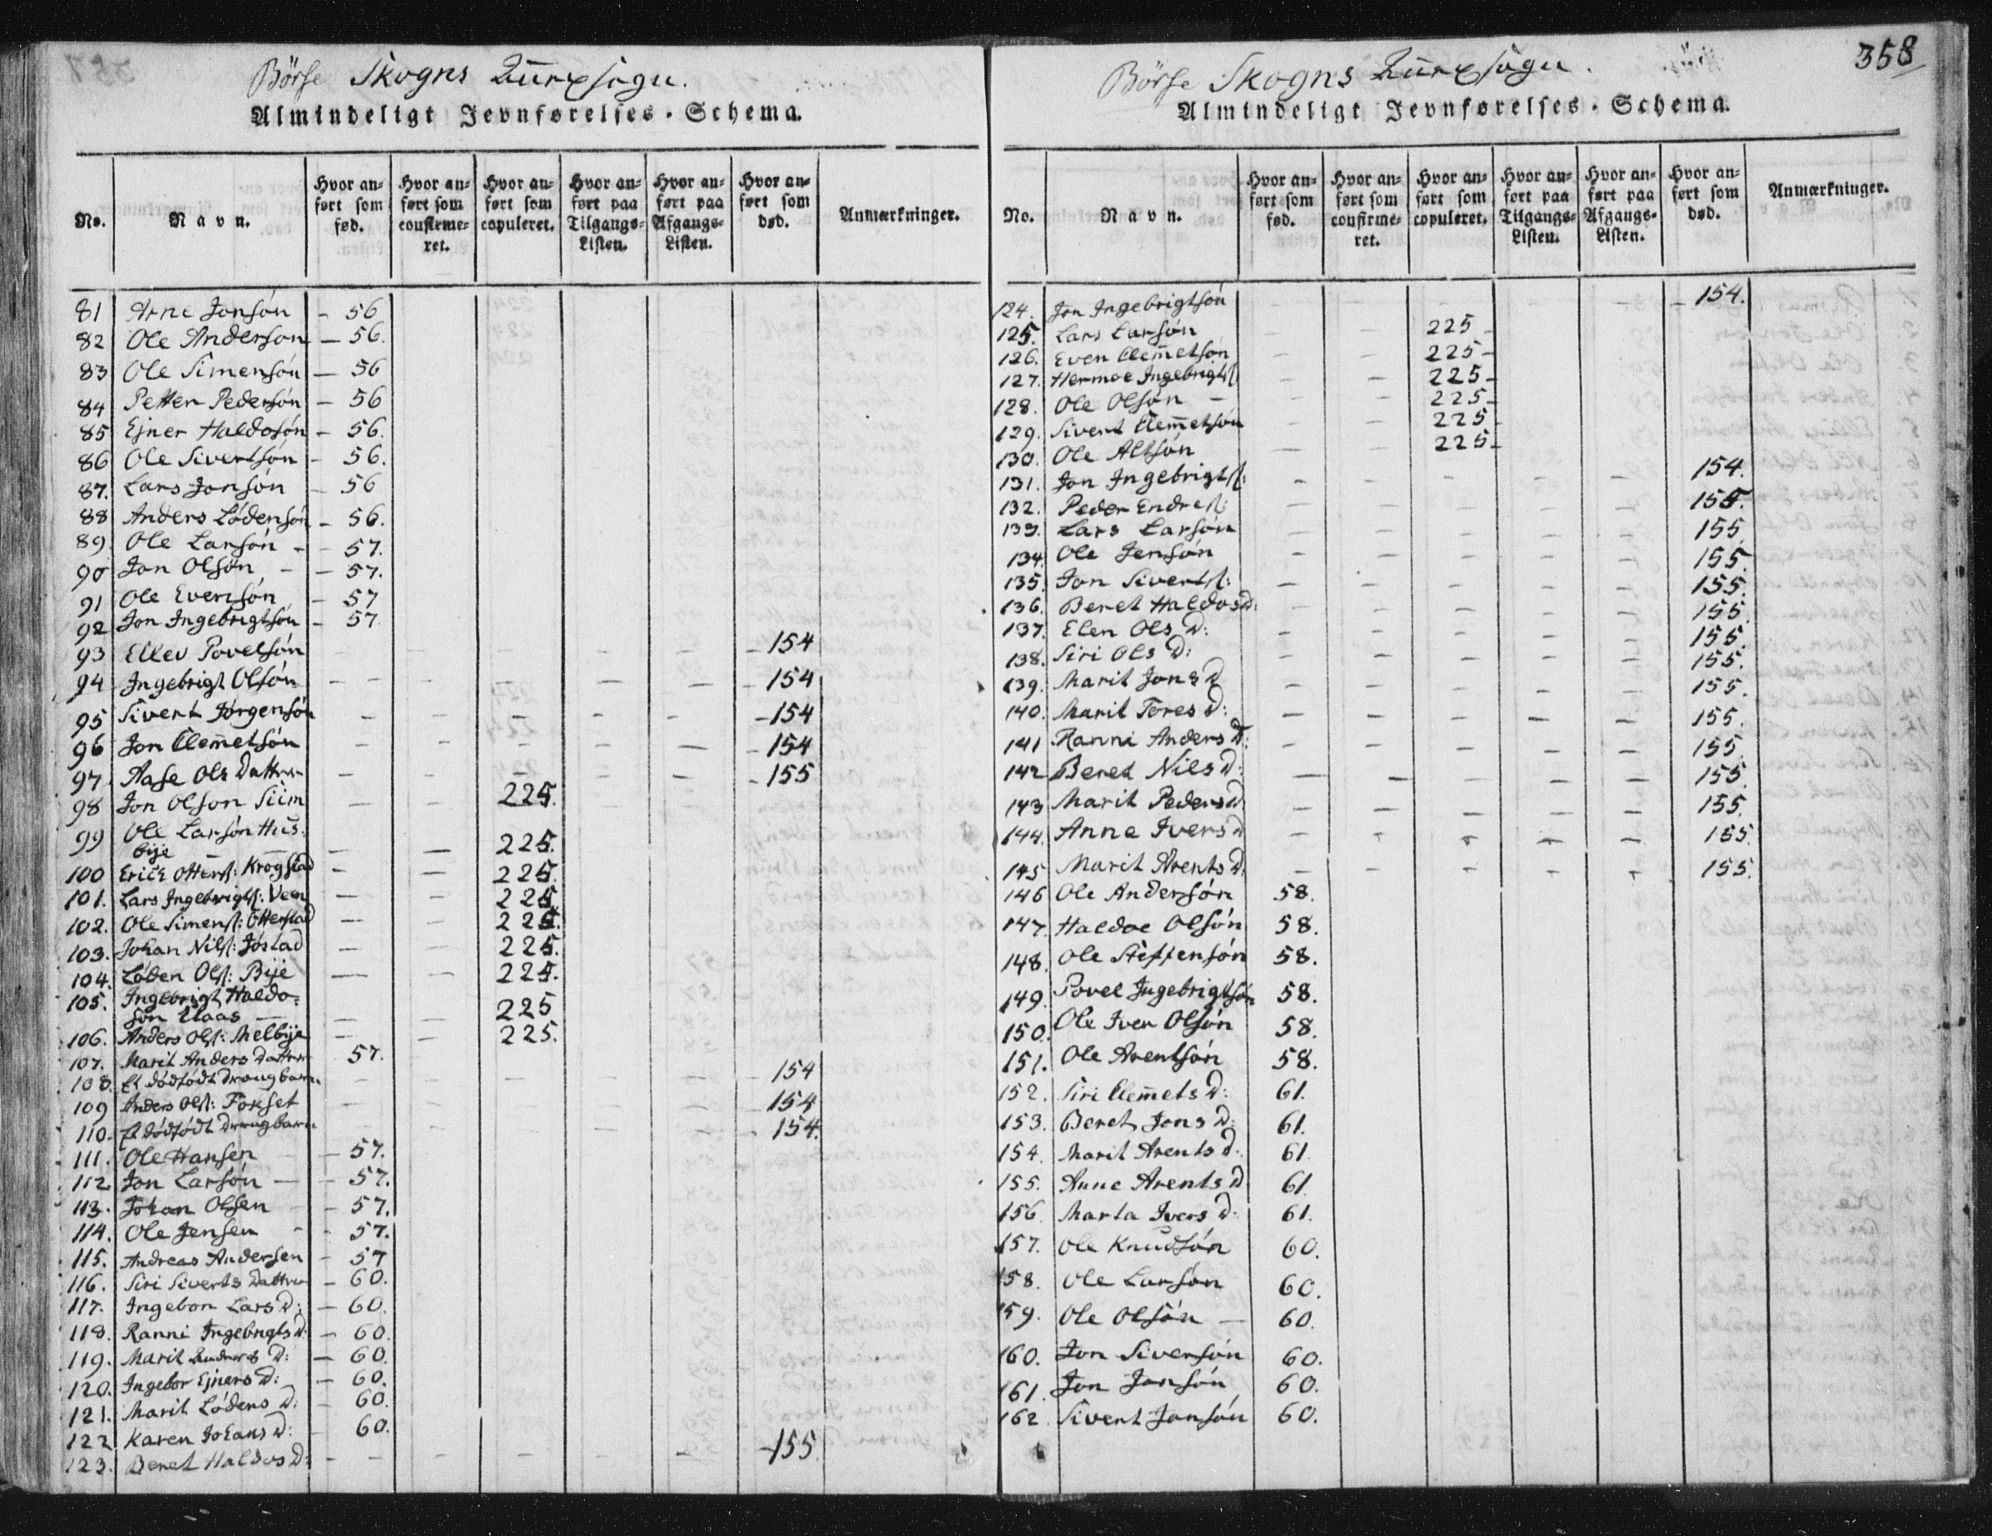 358
Börse Skogns Annexsogn.
Almindeligt Jevnførelses-Schema.
No. Navn. Hvor anført som fød. Hvor anført som confirmeret. Hvor anført som copuleret. Hvor anført paa Tilgangs-Listen. Hvor anført paa Afgangs-Listen. Hvor anført som død. Anmærkninger.
81 Arne Jonsón - 56
82 Ole Anderson - 56.
83 Ole Simensón - 56
84 Petter Pedersón - 56
85 Ejner Haldosón - 56.
86 Ole Sivertsón - 56.
87. Lars Jonsón - 56
88 Anders Lódensón - 56.
89. Ole Larsón - - 57.
90 Jon Olsón - - 57.
91 Ole Evensón - 57
92 Jon Ingebrigtsón - 57
93 Ellev Povelsón - - - - - 154
94 Ingebrigt Olsón - - - - - - 154
95 Sivert Jórgensón - - - - - - 154
96 Jon Clem̅etsón - - - - - - 154
97. Aase Ols Datter - - - - - - 155
98 Jon Olson Siim - - 225.
99 Ole Larsón Hus-
bije - - 225.
100 Erich Ottersſ: Krogstad - - 225.
101. Lars Ingebrigtsſ: Veen - - 225
102. Ole Simensſ: Otterstad - - 225.
103. Johan Nilsſ: Jóstad - - 225.
104. Lóden Olsſ: Bije - - 225.
105. Ingebrigt Haldo-
són Claas - - 225
106. Anders Olsſ: Melbije - - 225.
107. Marit Anders Datter 57.
108. Et dódfódt Drengbarn - - - - - 154
109 Anders Olsſ: Forset - - - - - - 154
110. Et dódfódt Drengbarn - - - - - 154.
111. Ole Hansen - 57.
112 Jon Larsón - - 57.
113. Johan Olsen - 57.
114. Ole Jensen - - 57.
115. Andreas Andersen - 57
116. Siri Siverts Datter - 60.
117. Ingebor Lars D: - 60.
118. Ranni Ingebrigts D: - 60.
119. Marit Anders D: - 60.
120. Ingebor Ejners D: - 60.
121. Marit Lódens D: - 60.
122 Karen Johans D: - 60.
123. Beret Haldos D: - - - - - - 155
Börse Skogns Annexsogn.
Almindeligt Jevnførelses-Schema.
No. Navn. Hvor anført som fød. Hvor anført som confirmeret. Hvor anført som copuleret. Hvor anført paa Tilgangs-Listen. Hvor anført paa Afgangs-Listen. Hvor anført som død. Anmærkninger.
124. Jon Ingebrigtsón - - - - - - 154.
125. Lars Larsón - - 225 -
126. Even Clem̅etsón - - 225 -
127. Hermoe Ingebrigtsſ: - - 225 -
128. Ole Olsón - - - 225 -
129. Sivert Clem̅etsón - - 225 -
130. Ole Altsón - - 225 -
131. Jon Ingebrigtsſ: - - - - - 154.
132. Peder Endresſ: - - - - - 155.
133. Lars Larsón - - - - - 155.
134. Ole Jensón - - - - - 155.
135. Jon Sivertsſ: - - - - - 155.
136. Beret Haldos D: - - - - - 155.
137. Elen Ols D: - - - - - 155.
138. Siri Ols D: - - - - - 155.
139. Marit Jons D - - - - - 155.
140. Marit Tores D: - - - - - 155.
141 Ranni Anders D: - - - - - 155.
142 Beret Nils D: - - - - - 155.
143 Marit Peders D - - - - - 155.
144. Anne Ivers D - - - - - 155
145 Marit Arents D. - - - - - 155.
146 Ole Andersón 58.
147. Haldoe Olsón 58.
148. Ole Steffensón 58.
149. Povel Ingebrigtsón 58.
150. Ole Iver Olsón 58.
151. Ole Arentsón 58.
152. Siri Clem̅ets D: 61.
153. Beret Jons D: 61.
154. Marit Arents D. 61
155. Anne Arents D 61
156. Marta Ivers D: 61.
157. Ole Knudsón 60.
158. Ole Larsón 60.
159. Ole Olsón - 60.
160. Jon Siversón 60.
161. Jon Jonsón 60.
162. Sivert Jonsón 60.